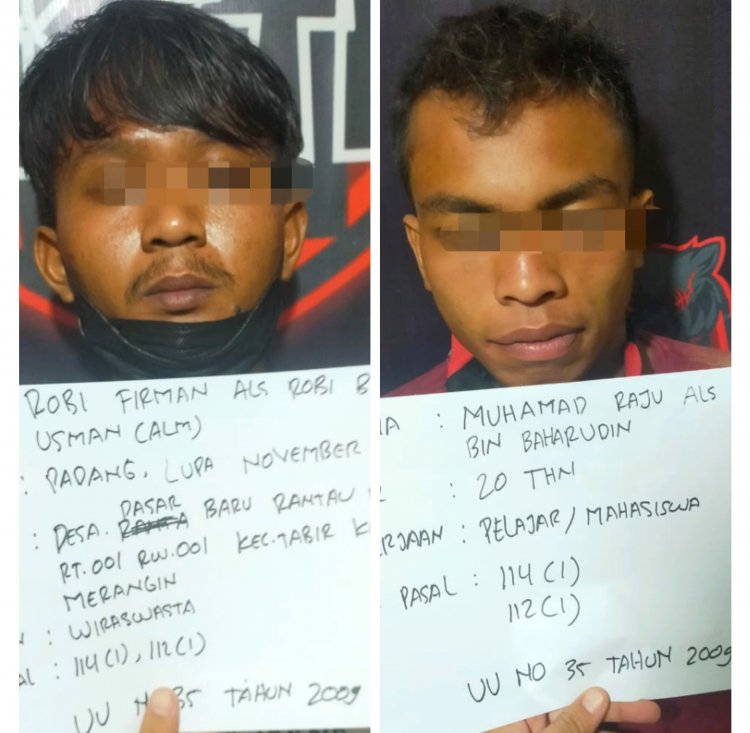 ROBI FIRMAN ALS ROBI B
USMAN (ALM)
: PADANG, LUPA NOVEMBER
PASAR
: DESA. BARU RANTAU
RT.001 RW.001 KEC.TABIR KA
MERANGIN
N : WIRASWASTA
AL : 114(1), 112(1)
UU NO 35 TAHUN 2009
MA : MUHAMAD RAJU ALS
BIN BAHARUDIN
R : 20 THN
ERJAAN : PELAJAR/MAHASISWA
PASAL : 114(1)
112(1)
UU NO 35 TAHUN 2009